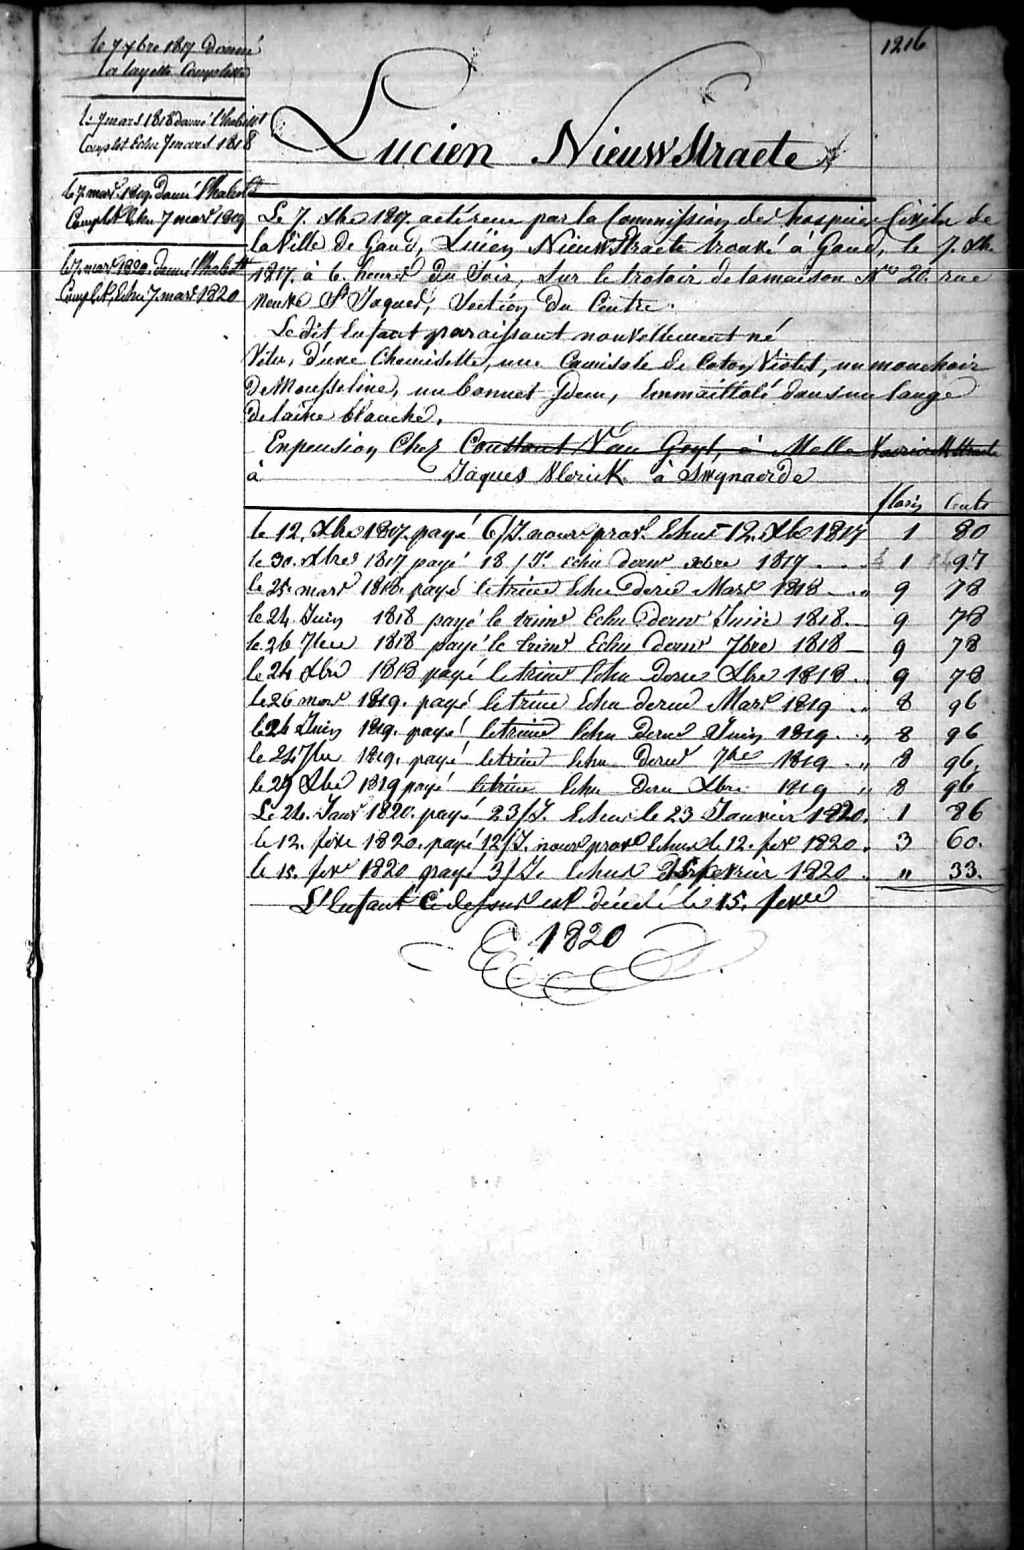 1216
le 7 xbre 1817 donné
la layette Complette
le 7 mars 1818 donné l'habillt
Complet Echu 7 mars 1818
le 7 mars 1819 donné l'habillt
Complet Echu 7 mars 1819
le 7 mars 1820 donné l'habillt
Complet, Echu 7 mars 1820
Lucien Nieuwstraete
Le 7. Xbre 1817. a été reçu par la Commission des hospices Civiles de
la Ville de Gand, Lucien Nieuwstraete trouvé à Gand, le 7. Xbre
1817. à 6. heures du Soir, Sur le trotoir de la maison No 20. rue
neuve St Jaques, Section du Centre.
Le dit Enfant paraissant nouvellement né
Vetu, d'une Chemisette, une Camisole de Coton Violet, un mouchoir
de Mousseline, un bonnet Idem, Emmaillolé dans un lange
de laine blanche.
En pension Chez Constant Van Goyt, à Melle
à Jaques Vlerick à Swynaerde
florin Cents
le 12. Xbre 1817. payé 6/J. nour prov. Echus 12. Xbre 1817 1 80
le 30. xbre 1817 payé 18/J. echu derner xbre 1817 . . . . 1 97
le 25. mars 1818. payé le trime Echu derner Mars 1818 . . . 9 78
le 24. Juin 1818 payé le trimr Echu dernr Juin 1818. 9 78
le 26 7bre 1818 payé le trimr Echu dernr 7bre 1818 9 78
le 24 Xbre 1818 payé le trime Echu derner Xbre 1818 . . 9 78
le 26 mars 1819. payé le trime Echu derner Mars 1819 . . „ 8 96
le 24 Juin 1819. payé le trime Echu derner Juin 1819 . . „ 8 96
le 24 7bre 1819. payé le trime Echu dernr 7bre 1819 . . „ 8 96.
le 29 Xbre 1819 payé le trime Echu dern Xbre 1819 „ 8 96
Le 24. Janr 1820. payé 23/J. Echus le 23 Janvier 1820. 1 86
le 12. fevre 1820. payé 12/J. nour prov Echus le 12. fevr 1820. 3 60.
le 15. fevr 1820 payé 3/J. Echus 15 fevrier 1820 . „ 33.
L'Enfant Ci dessus est décédé le 15. fevre
1820